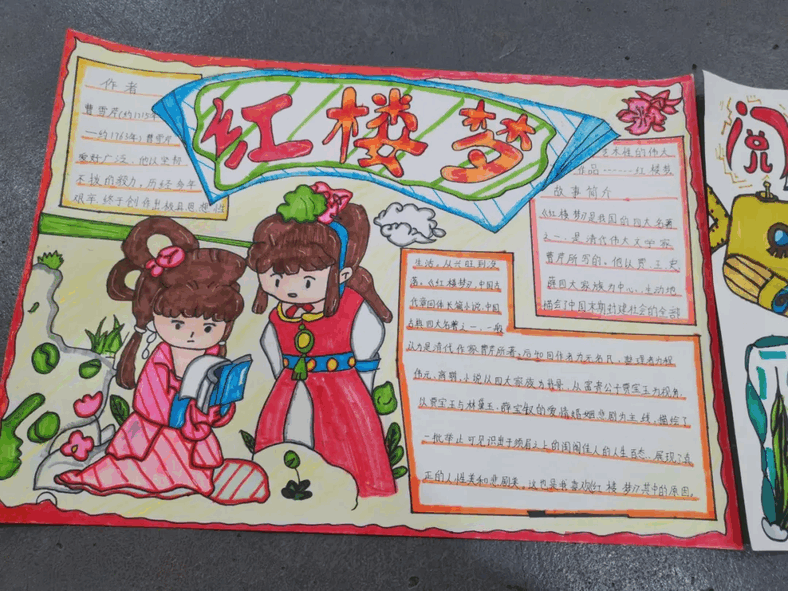 红楼梦
作者
曹雪芹(约1715年
——约1763年)曹雪芹
爱好广泛,他以坚韧
不拔的毅力,历经多年
艰辛 终于创作出极具思想性
艺术性的伟大
作品……红楼梦
故事简介
《红楼梦》是我国的四大名著
之一.是清代伟大文学家
曹芹所写的.他以贾.王.史
薛四大家族为中心,生动地
描绘了中国末期封建社会的全部
生活,从兴旺到没
落。《红楼梦》,中国古
代章回体长篇小说,中国
古典四大名著之一,一般
认为是清代作家曹芹所著,后
四大家族为背景,从富贵公子贾宝玉为视角,
以贾宝玉与林黛玉.薛宝钗的爱情婚姻悲剧为主线,描绘了
一批举止可见识出于须眉之上的闺阁佳人的人生百态.展现了真
正的人性美和悲剧美,这也是我喜欢《红楼梦》其中的原因.
阅